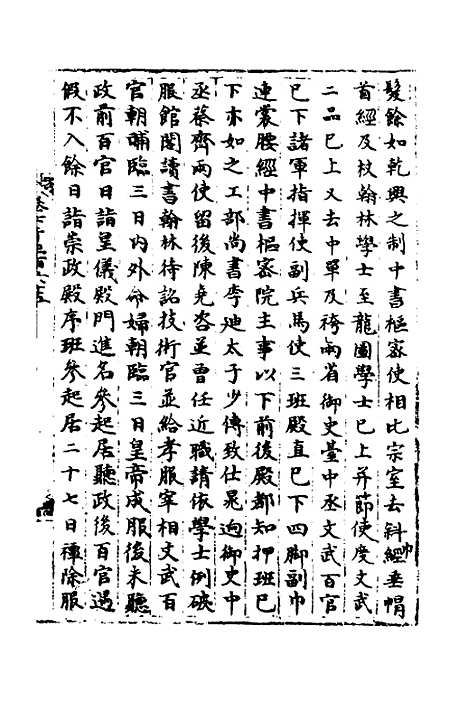 髮餘如乾興之制中書樞密使相比宗室去斜巾垂帽
首絰及杖翰林學士至龍圖學士已上并節使度文武
二品已上又去中單及袴兩省御史臺中丞文武百官
已下諸軍指揮使副兵馬使三班殿直已下四脚副巾
連裳腰絰中書樞密院主事以下前後殿都知押班已
下亦如之工部尚書李迪太子少傅致仕晁迥御史中
丞蔡齊兩使留後陳堯咨並曾任近職請依學士例破
服館閣讀書翰林待詔技術官並給孝服宰相文武百
官朝晡臨三日内外命婦朝臨三日皇帝成服後未聽
政前百官日詣皇儀殿門進名參起居聽政後百官遇
假不入餘日詣崇政殿序班參起居二十七日禫除服